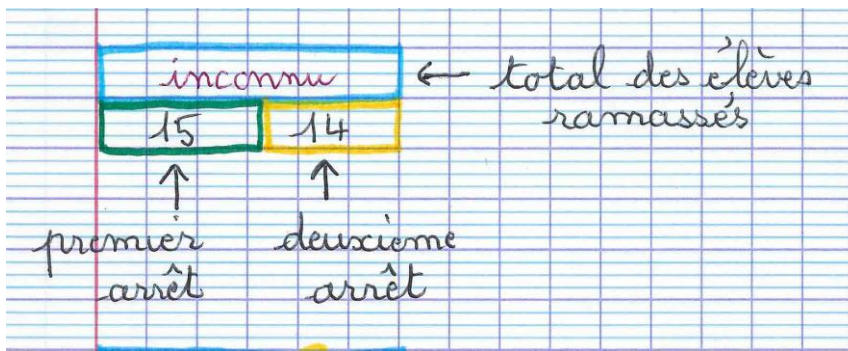 inconnu ← total des élèves
ramassés
15 14
↑ ↑
premier deuxième
arrêt arrêt